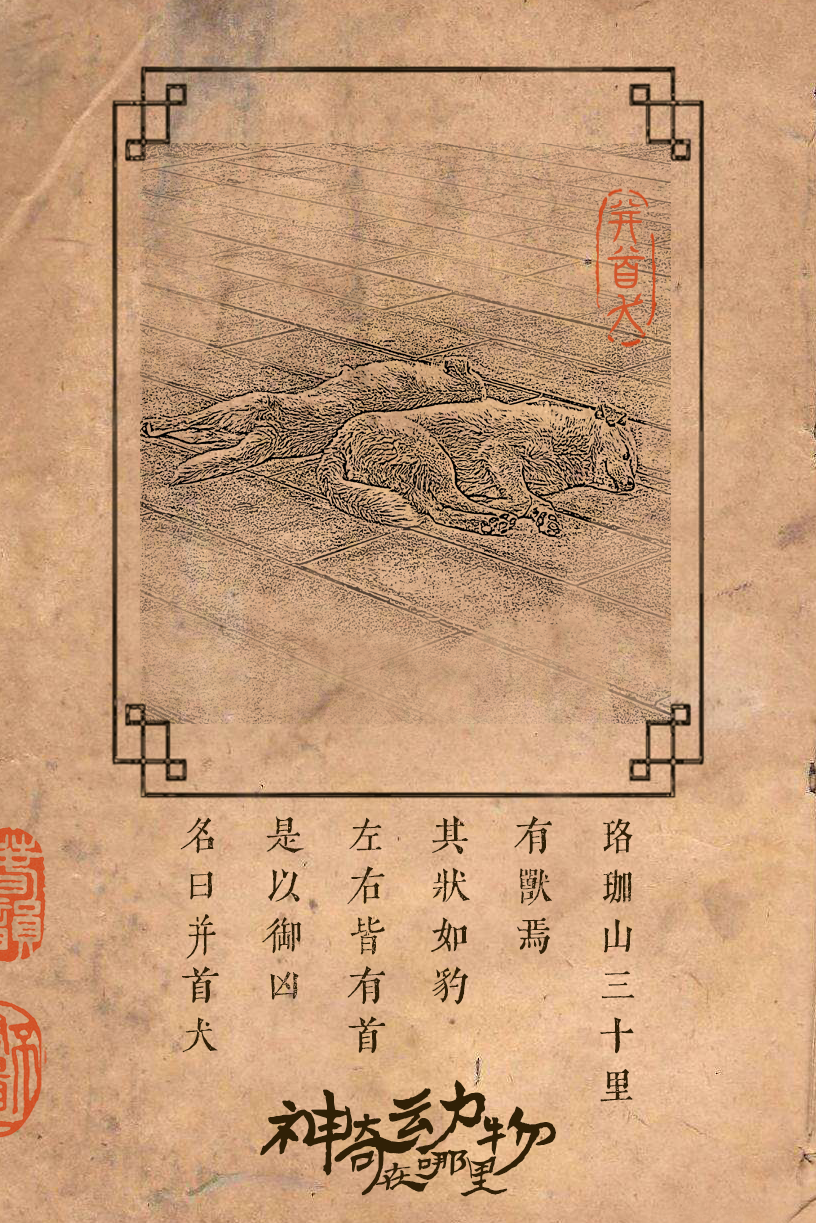 并首犬
珞珈山三十里
有獸焉
其狀如豹
左右皆有首
是以御凶
名曰并首犬
神奇动物
在哪里